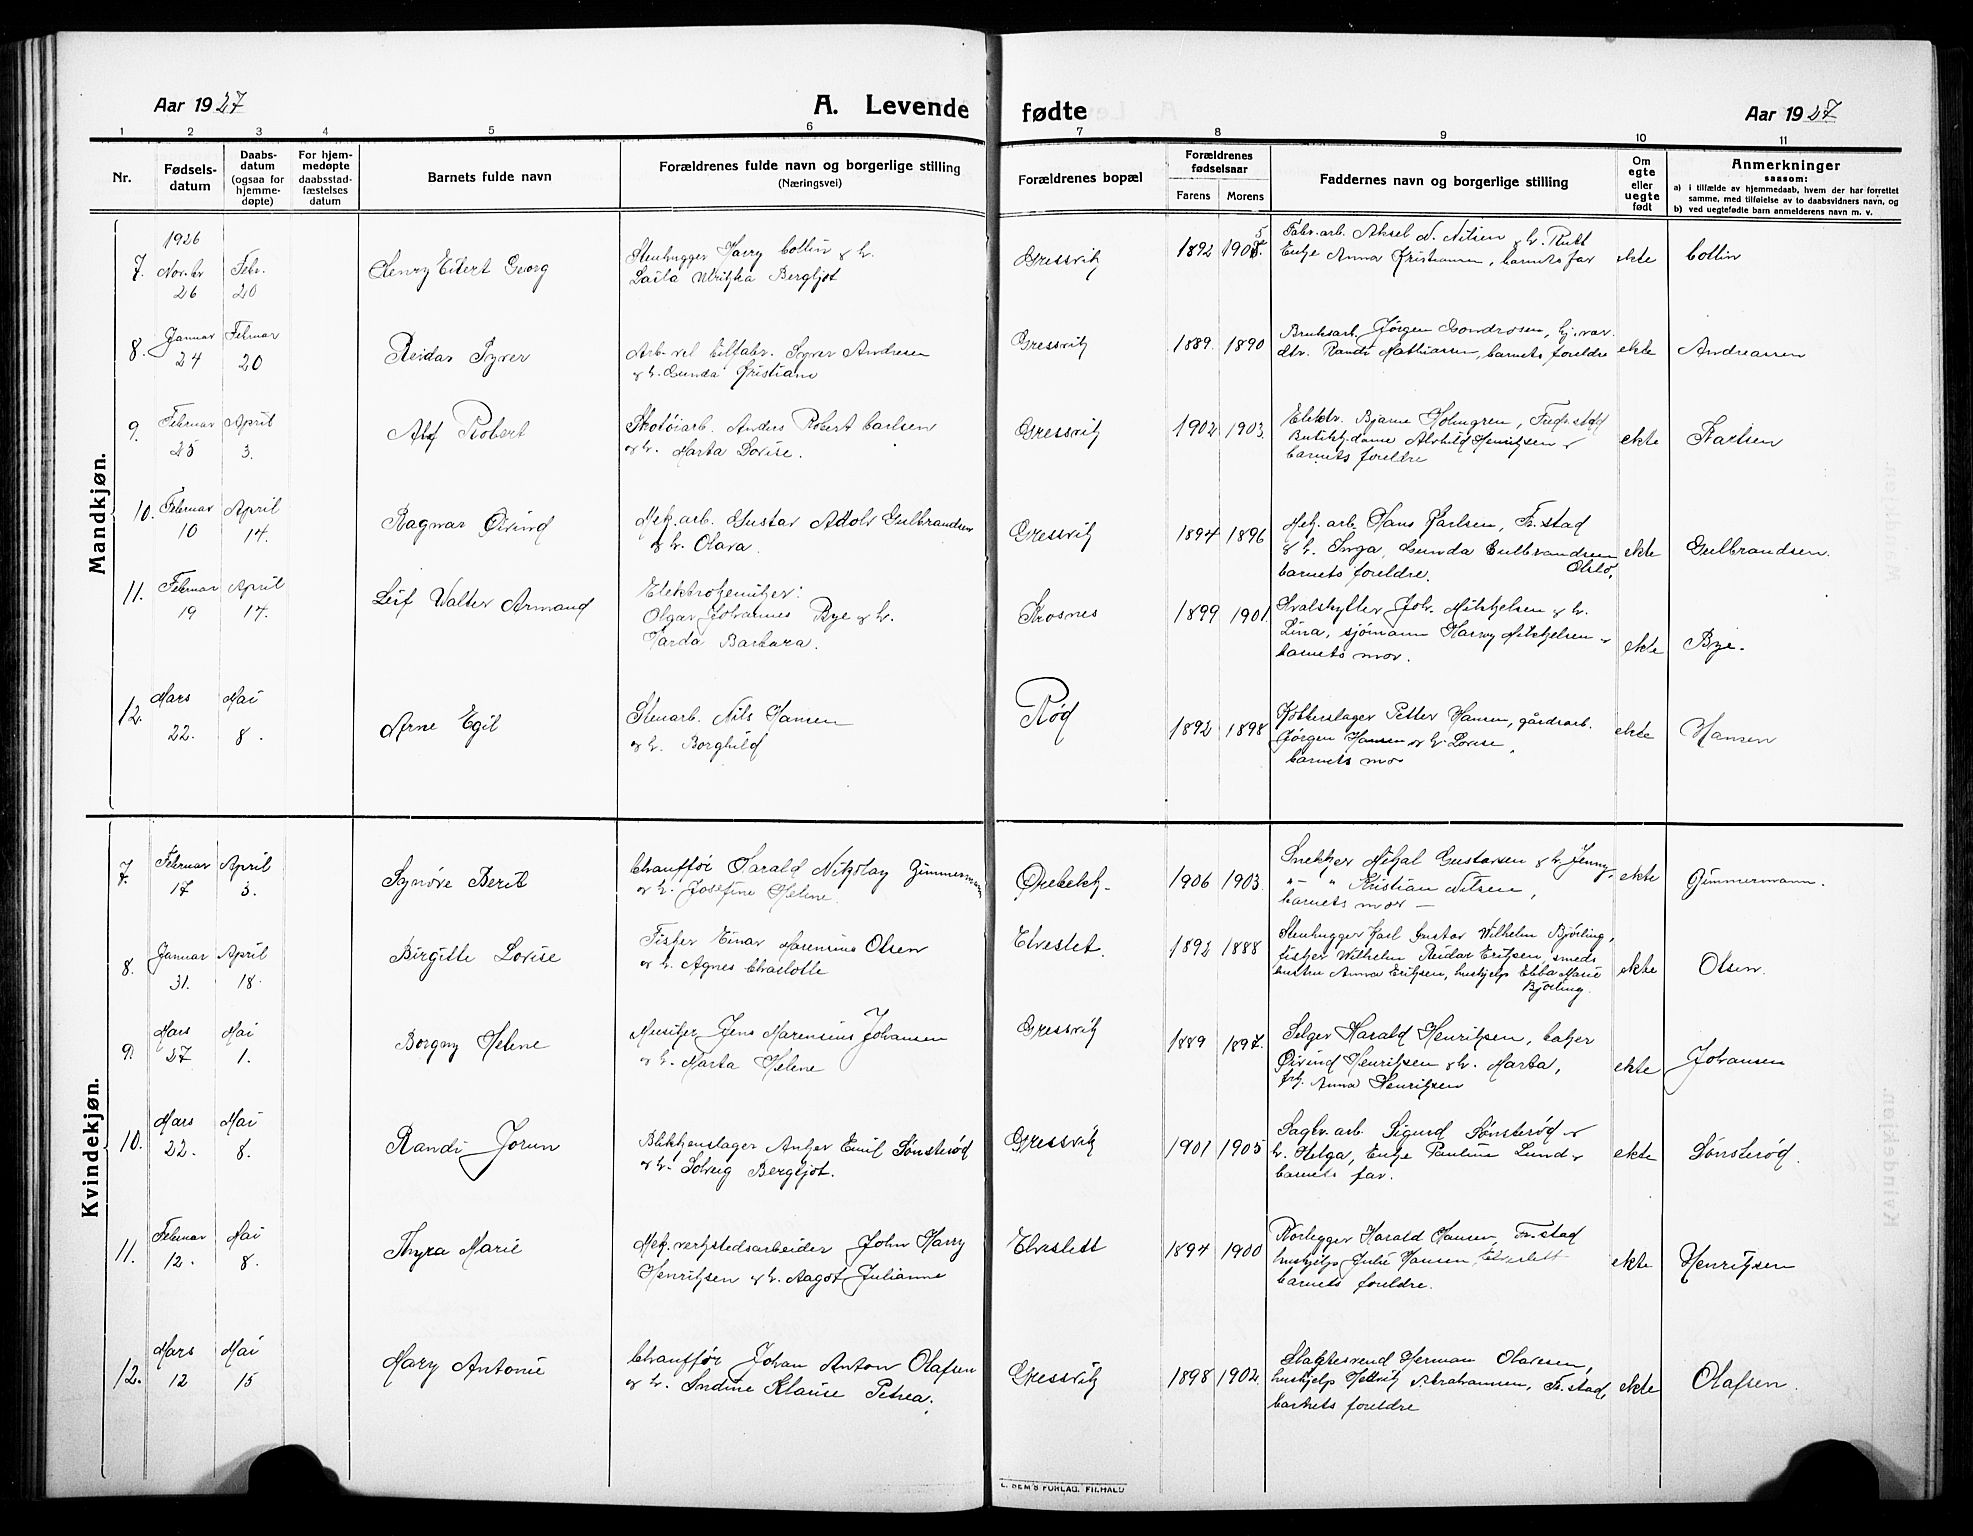 Aar 1927
A. Levende
fødte
Aar 1927
1 2 3 4 5 6 7 8 9 10 11
Nr.
Fødsels-
datum
Daabs-
datum
(ogsaa for
hjemme-
døpte)
For hjem-
medøpte
daabsstad-
fæstelses
datum
Barnets fulde navn
Forældrenes fulde navn og borgerlige stilling
(Næringsvei)
Forældrenes bopæl
Forældrenes
fødselsaar
Farens Morens
Faddernes navn og borgerlige stilling
Om
egte
eller
uegte
født
Anmerkninger
saasom:
a) i tilfælde av hjemmedaab, hvem der har forrettet
samme, med tilføielse av to daabsvidners navn, og
b) ved uegtefødte barn anmelderens navn m. v.
Mandkjøn.
7.
1926
Novbr
26
Febr.
20
Henry Eilert Georg
Stenhugger Harry Collin & h.
Laila Ulrikka Bergljot
Gressvik
1892 1905
Fabr. arb. Aksel N. Nilsen & h. Rutt
Enke Anna Kristiansen, barnets far
ekte
Collin
8.
Januar
24
Februar
20
Reidar Syver
Arb. ved Lilfabr. Syver Andresen
& h. Gunda Kristiane
Gressvik
1889. 1890
Bruksarb. Jørgen
dtr. Randi Mathiassen, barnets foreldre
ekte
Andreassen
9.
Februar
25
April
3.
Alf Robert
Skotøiarb. Anders Robert Carlsen
& h. Marta Lovise.
Gressvik
1902 1903.
Elektr. Bjarne Holmgren, Fredr.stad
Butikkdame Alvhild Henriksen &
barnets foreldre
ekte
Karlsen
10.
Februar
10
April
14.
Ragnar Øivind
Mek. arb. Gustav Adolv Gulbrandsen
& h. Olava.
Gressvik
1894 1896
Mek. arb. Hans Karlsen, Fr.stad
& h. Inga, Gunda Gulbrandsen
Oslo,
barnets foreldre.
ekte
Gulbrandsen.
11.
Februar
19
April
17.
Leif Walter Armand
Elektrokemiker:
Olgar Johannes Bye & h.
Harda Barbara.
Krosnes
1899 1901.
Hvalskytter Joh. Mikkelsen & h.
Lina, sjømann Harry Mikkelsen &
barnets mor.
ekte
Bye.
12.
Mars
22.
Mai
8.
Arne Egil
Stenarb. Nils Hansen
& h. Borghild
Rød
1892 1898
Petter Hansen, gårdsarb.
Jørgen Hansen & h. Lovise,
barnets mor
ekte
Hansen
Kvindekjøn.
7.
Februar
17
April
3.
Synøve Berit
Chauffør Harald Nikolay Gimmermann
& h. Josefine Helene.
Ørebekk.
1906 1903.
Snekker Mikal Gustavsen & h. Jenny,
— " Kristian Nilsen,
barnets mor —
ekte
Gimmermann.
8.
Januar
31.
April
18.
Birgitte Lovise
Fisker Einar Marensius Olsen
& h. Agnes Charlotte
Elveslet.
1892 1888
Stenhugger Karl Gustav Wilhelm Bjørling,
fisker Wilhelm Reidar Eriksen, smeds
hustru Anna Eriksen, hushjelp Ebba Marie
Bjørling.
ekte
Olsen.
9.
Mars
27
Mai
1.
Borgny Helene
Musiker Jens Marensius Johansen
& h. Marta Helene
Gressvik
1889 1897.
Selger Harald Henriksen, baker
Øivind Henriksen & h. Marta,
frk. Anna Henriksen
ekte
Johansen
10.
Mars
22.
Mai
8.
Randi Jorun
Blikkenslager Anker Emil Sønsterød
& h. Solveig Bergljot.
Gressvik
1901 1905
Sagbr. arb. Sigurd Sønsterød &
h. Helga, Enke Pauline Lund &
barnets far.
ekte
Sønsterød.
11.
Februar
12.
Mai
8.
Thyra Marie
Mek. verkstedsarbeider John Harry
Henriksen & h. Aagot Julianne
Elveslett
1894 1900
Rørlegger Harald Hansen, Fr.stad
hushjelp Julie Hansen, Elveslett
barnets foreldre.
ekte
Henriksen
12.
Mars
12
Mai
15
Mary Antonie
Chauffør Johan Anton Olafsen
& h. Indine Klause Petrea.
Gressvik
1898 1902.
Slaktersvend Herman Olavesen,
hushjelp Hellvik Abrahamsen, Fr.stad,
barnets foreldre
ekte
Olafsen.
E. SEM'S FORLAG. FR.HALD